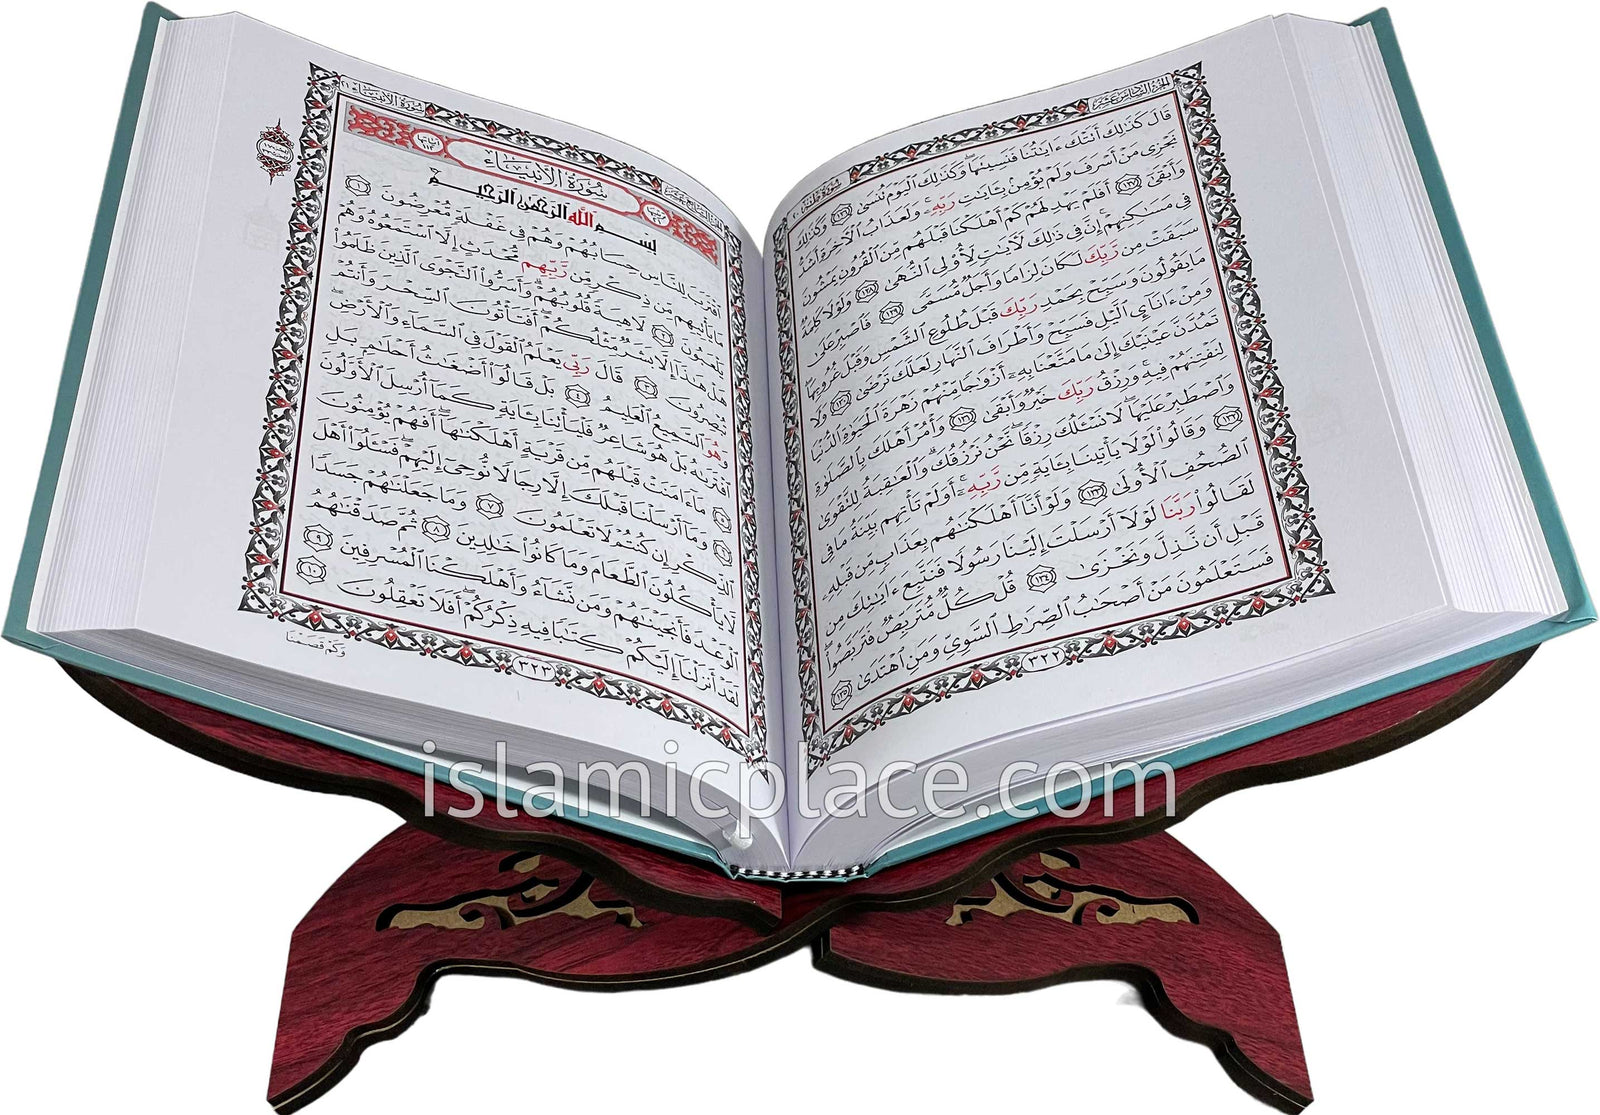 سُورَةُ طٰهٰ ٢٠
الجُزْءُ السَّادِسَ عَشَرَ
قَالَ كَذَٰلِكَ أَتَتْكَ ءَايَٰتُنَا فَنَسِيتَهَا ۖ وَكَذَٰلِكَ ٱلْيَوْمَ تُنسَىٰ ١٢٦ وَكَذَٰلِكَ
نَجْزِى مَنْ أَسْرَفَ وَلَمْ يُؤْمِنۢ بِـَٔايَٰتِ رَبِّهِۦ ۚ وَلَعَذَابُ ٱلْءَاخِرَةِ أَشَدُّ
وَأَبْقَىٰٓ ١٢٧ أَفَلَمْ يَهْدِ لَهُمْ كَمْ أَهْلَكْنَا قَبْلَهُم مِّنَ ٱلْقُرُونِ يَمْشُونَ
فِى مَسَٰكِنِهِمْ ۗ إِنَّ فِى ذَٰلِكَ لَءَايَٰتٍ لِّأُو۟لِى ٱلنُّهَىٰ ١٢٨ وَلَوْلَا كَلِمَةٌ
سَبَقَتْ مِن رَّبِّكَ لَكَانَ لِزَامًا وَأَجَلٌ مُّسَمًّى ١٢٩ فَٱصْبِرْ عَلَىٰ
مَا يَقُولُونَ وَسَبِّحْ بِحَمْدِ رَبِّكَ قَبْلَ طُلُوعِ ٱلشَّمْسِ وَقَبْلَ غُرُوبِهَا ۖ
وَمِنْ ءَانَآئِ ٱلَّيْلِ فَسَبِّحْ وَأَطْرَافَ ٱلنَّهَارِ لَعَلَّكَ تَرْضَىٰ ١٣٠ وَلَا
تَمُدَّنَّ عَيْنَيْكَ إِلَىٰ مَا مَتَّعْنَا بِهِۦٓ أَزْوَٰجًا مِّنْهُمْ زَهْرَةَ ٱلْحَيَوٰةِ ٱلدُّنْيَا
لِنَفْتِنَهُمْ فِيهِ ۚ وَرِزْقُ رَبِّكَ خَيْرٌ وَأَبْقَىٰ ١٣١ وَأْمُرْ أَهْلَكَ بِٱلصَّلَوٰةِ
وَٱصْطَبِرْ عَلَيْهَا ۖ لَا نَسْـَٔلُكَ رِزْقًا ۖ نَّحْنُ نَرْزُقُكَ ۗ وَٱلْعَٰقِبَةُ لِلتَّقْوَىٰ
١٣٢ وَقَالُوا۟ لَوْلَا يَأْتِينَا بِـَٔايَةٍ مِّن رَّبِّهِۦٓ ۚ أَوَلَمْ تَأْتِهِم بَيِّنَةُ مَا فِى
ٱلصُّحُفِ ٱلْأُولَىٰ ١٣٣ وَلَوْ أَنَّآ أَهْلَكْنَٰهُم بِعَذَابٍ مِّن قَبْلِهِۦ
لَقَالُوا۟ رَبَّنَا لَوْلَآ أَرْسَلْتَ إِلَيْنَا رَسُولًا فَنَتَّبِعَ ءَايَٰتِكَ مِن
قَبْلِ أَن نَّذِلَّ وَنَخْزَىٰ ١٣٤ قُلْ كُلٌّ مُّتَرَبِّصٌ فَتَرَبَّصُوا۟ ۖ
فَسَتَعْلَمُونَ مَنْ أَصْحَٰبُ ٱلصِّرَٰطِ ٱلسَّوِىِّ وَمَنِ ٱهْتَدَىٰ ١٣٥
٣٢٢
سُورَةُ الأَنْبِيَاء ٢١
سُورَةُ الأَنْبِيَاءِ
آيَاتُهَا ١١٢
بِسْمِ ٱللَّهِ ٱلرَّحْمَٰنِ ٱلرَّحِيمِ
ٱقْتَرَبَ لِلنَّاسِ حِسَابُهُمْ وَهُمْ فِى غَفْلَةٍ مُّعْرِضُونَ ١
مَا يَأْتِيهِم مِّن ذِكْرٍ مِّن رَّبِّهِم مُّحْدَثٍ إِلَّا ٱسْتَمَعُوهُ وَهُمْ
يَلْعَبُونَ ٢ لَاهِيَةً قُلُوبُهُمْ ۗ وَأَسَرُّوا۟ ٱلنَّجْوَى ٱلَّذِينَ ظَلَمُوا۟
هَلْ هَٰذَآ إِلَّا بَشَرٌ مِّثْلُكُمْ ۖ أَفَتَأْتُونَ ٱلسِّحْرَ وَأَنتُمْ
تُبْصِرُونَ ٣ قَالَ رَبِّى يَعْلَمُ ٱلْقَوْلَ فِى ٱلسَّمَآءِ وَٱلْأَرْضِ ۖ
وَهُوَ ٱلسَّمِيعُ ٱلْعَلِيمُ ٤ بَلْ قَالُوٓا۟ أَضْغَٰثُ أَحْلَٰمٍۭ بَلِ
ٱفْتَرَىٰهُ بَلْ هُوَ شَاعِرٌ فَلْيَأْتِنَا بِـَٔايَةٍ كَمَآ أُرْسِلَ ٱلْأَوَّلُونَ
٥ مَآ ءَامَنَتْ قَبْلَهُم مِّن قَرْيَةٍ أَهْلَكْنَٰهَآ ۖ أَفَهُمْ يُؤْمِنُونَ
٦ وَمَآ أَرْسَلْنَا قَبْلَكَ إِلَّا رِجَالًا نُّوحِىٓ إِلَيْهِمْ ۖ فَسْـَٔلُوٓا۟ أَهْلَ
ٱلذِّكْرِ إِن كُنتُمْ لَا تَعْلَمُونَ ٧ وَمَا جَعَلْنَٰهُمْ جَسَدًا
لَّا يَأْكُلُونَ ٱلطَّعَامَ وَمَا كَانُوا۟ خَٰلِدِينَ ٨ ثُمَّ صَدَقْنَٰهُمُ
ٱلْوَعْدَ فَأَنجَيْنَٰهُمْ وَمَن نَّشَآءُ وَأَهْلَكْنَا ٱلْمُسْرِفِينَ ٩
لَقَدْ أَنزَلْنَآ إِلَيْكُمْ كِتَٰبًا فِيهِ ذِكْرُكُمْ ۖ أَفَلَا تَعْقِلُونَ ١٠
٣٢٣
وَكَمْ قَصَمْنَا
islamicplace.com